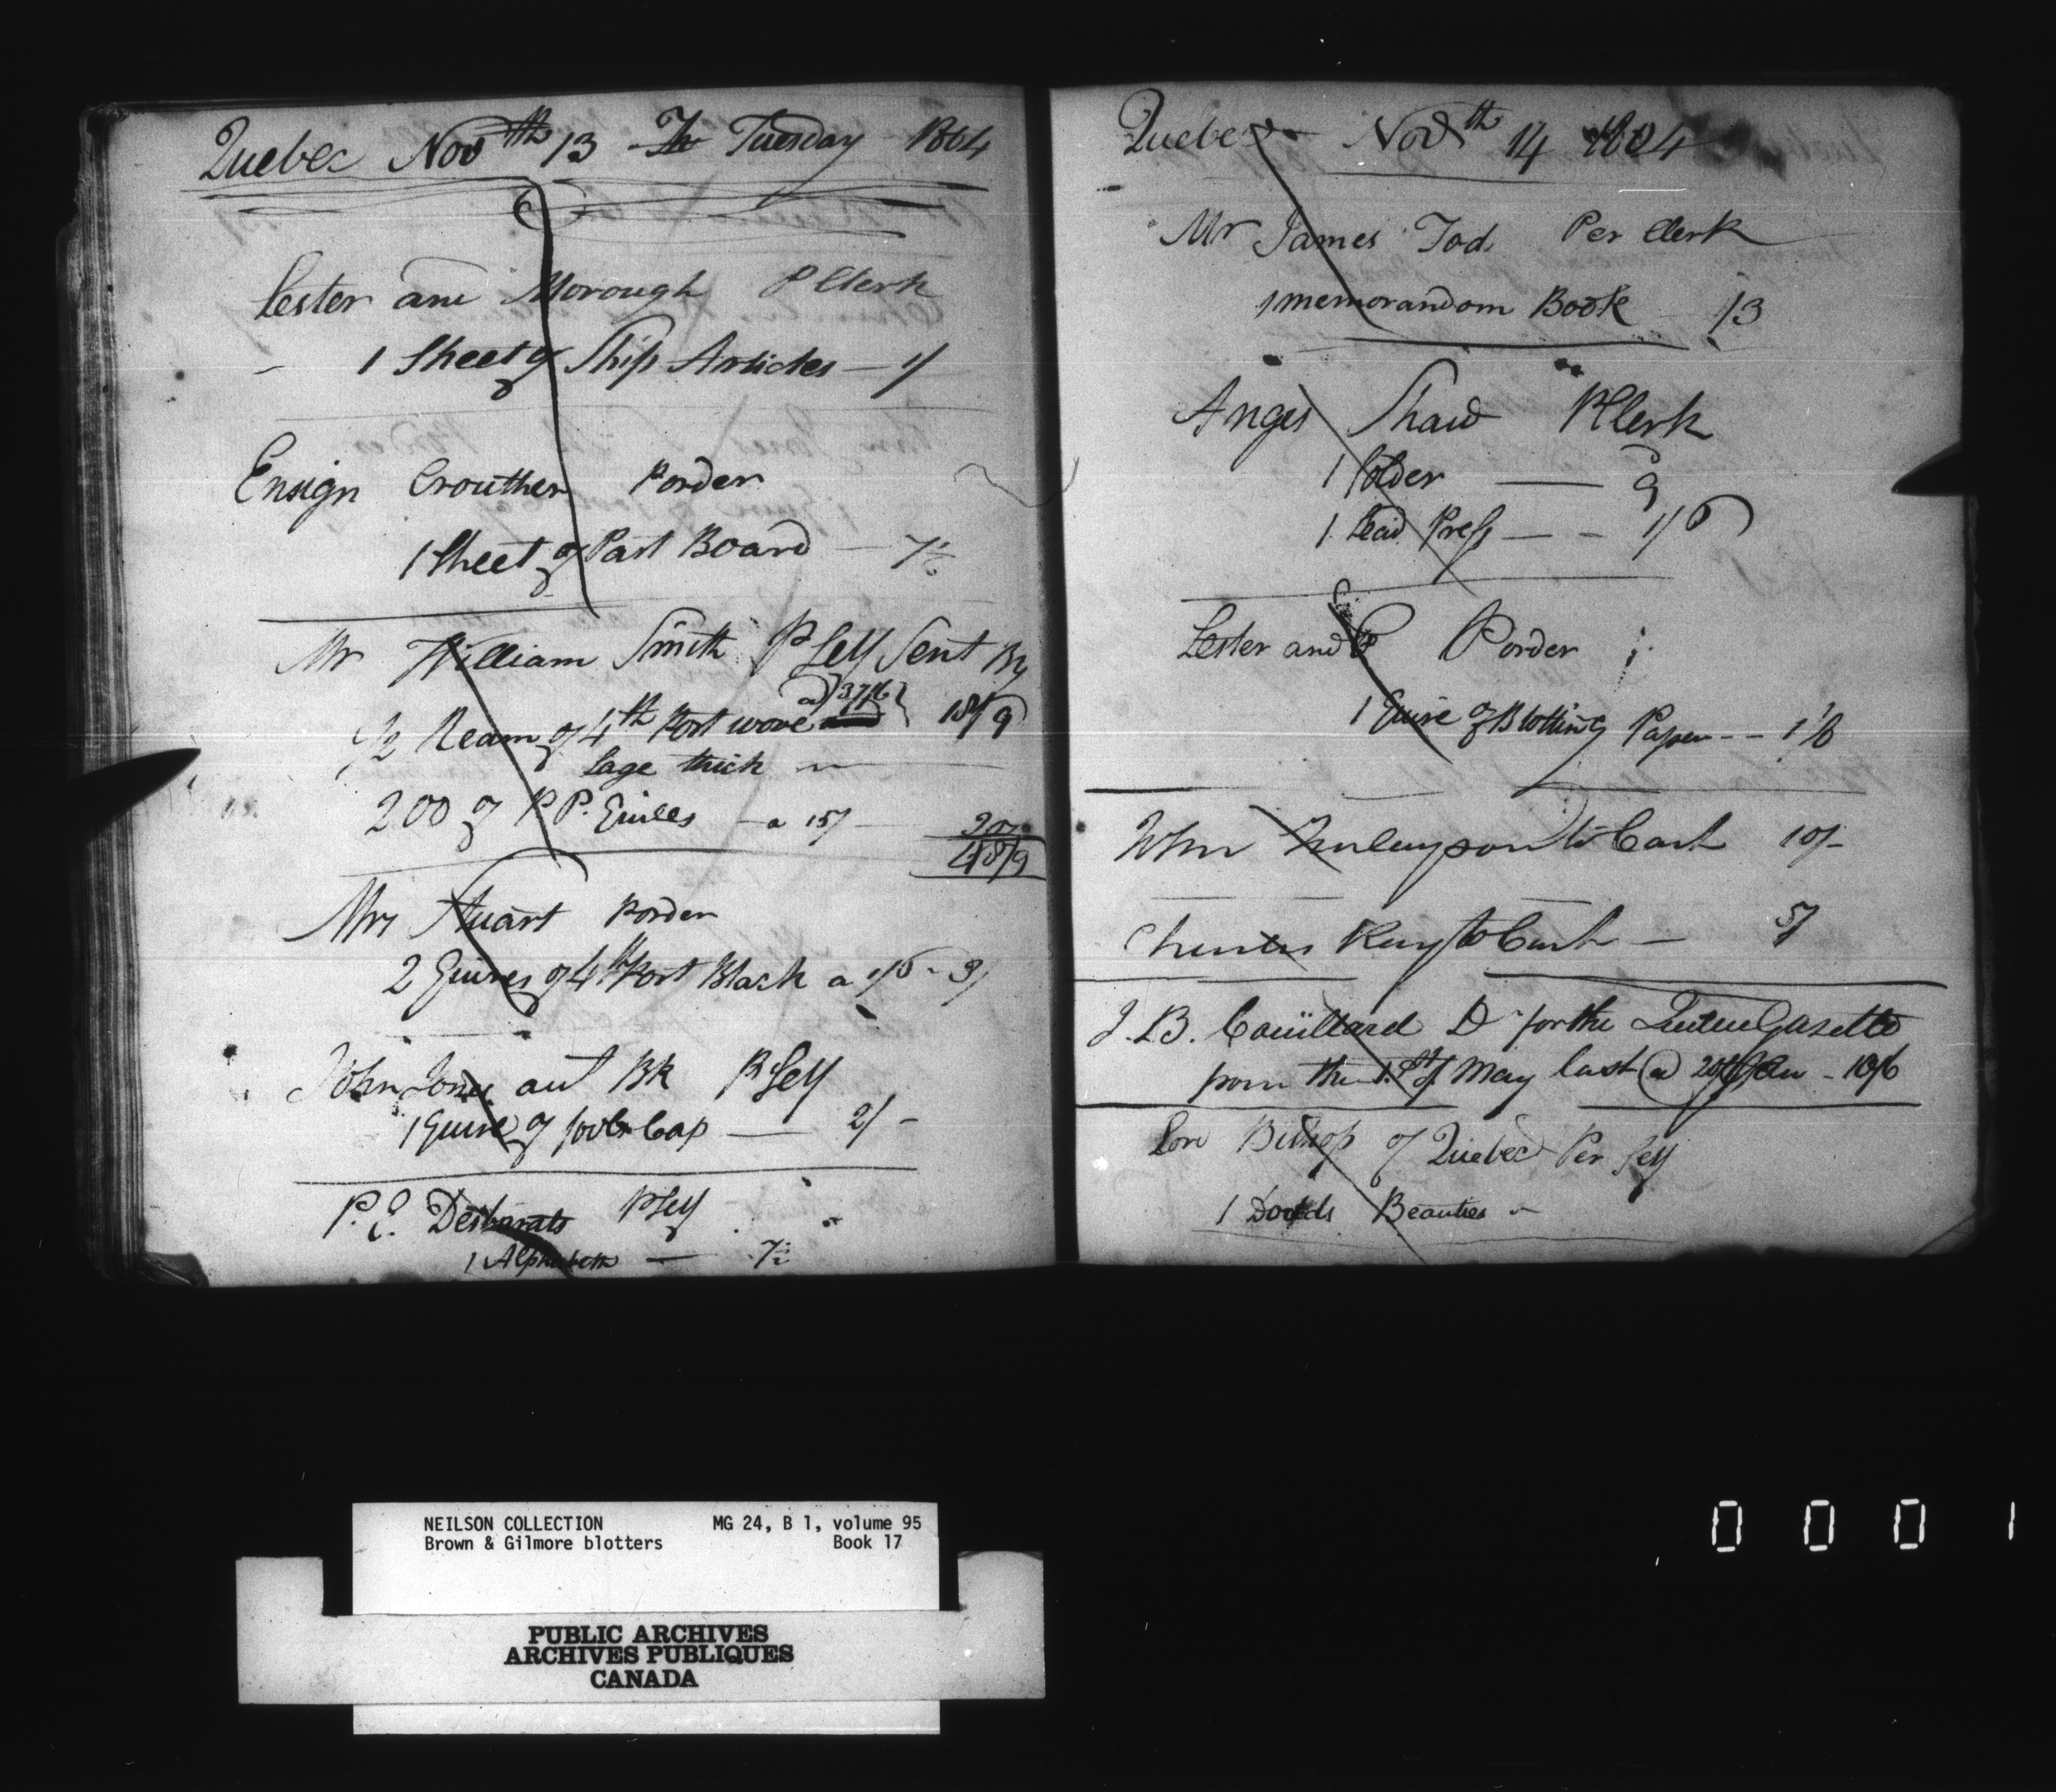 Quebec Novth 13 Th Tuesday 1804
Lester and Morough P Clerk
1 Sheet of Ship Articles — 1/
Ensign Crouther Porder
1 Sheet of Past Board — 7½
Mr William Smith P Self Sent By
½ Ream of 4th Post wove a 37/6 } 18/9
Lage thick
200 of P.P. Quills — a 15/
48/9
Mrs Stuart Porder
2 Quires of 4th Post Black a 1/6 - 3/
John Jones aut BK P Self
1 Quire of fools Cap — 2/-
P. E. Desbarats P Self
1 Alphabeth — 7½
Quebec Novth 14 1804
Mr James Tod Per Clerk
1 memorandom Book 1/3
Anges Shaw P Clerk
1 folder — 9
1 Lead Press — - 1/6
Lester and Porder
1 Quire of Blotting Paper - - 1/6
John to Cash 10/-
Charles Ray to Cash — 5/
J. B. Couillard Dr for the Quebec Gazette
from the 1st of May last @ 20/ - 10/6
Lord Bishop of Quebec Per Self
1 Dodds Beauties
NEILSON COLLECTION MG 24, B 1, volume 95
Brown & Gilmore blotters Book 17
PUBLIC ARCHIVES
ARCHIVES PUBLIQUES
CANADA
0 0 0 1